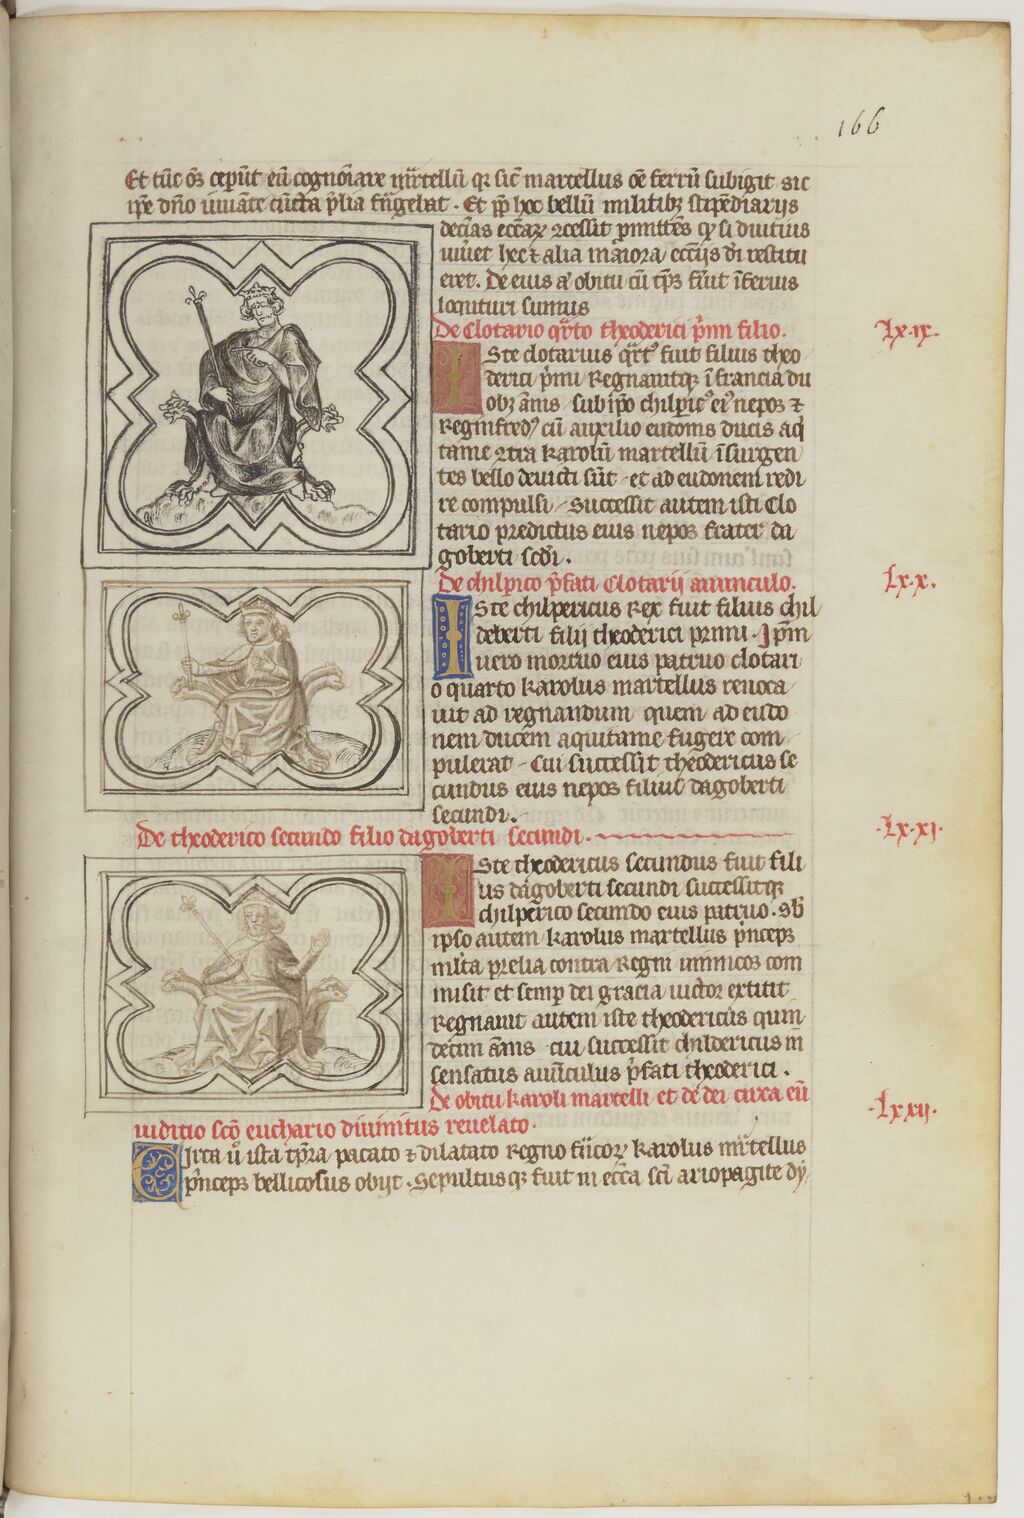 166
Et tūc oēs ceperūt eū cognoīare mr̄tellū qr sic̄ martellus oē ferrū subigit sic
ip̄e dn̄o iuuāte cūcta p̄lia frīgebat . Et pp̄ hoc bellū militibꝫ stipēdiariis
decīas ecc̄aꝝ ꝯcessit promittēs qꝫ si diutius
uiuet hec ⁊ alia maiora ecc̄iis dī restitu
eret . De eius aī obitu cū tp̄s fūit īferius
locuturi sumus
De Clotario qr̄to theoderici p̄mi filio .
Iste clotarius qr̄tꝰ fuit filius theo
derici p̄mi Regnauitqꝫ ī francia du
obꝫ ānis sub ip̄o chilpricꝰ eiꝰ nepos ⁊
Reginfredꝰ cū auxilio eudonis ducis aq̄
tanie ꝯtra karolū martellū īsurgen
tes bello deuicti sūt et ad eudonem redi
re compulsi / Successit autem isti Clo
tario predictus eius nepos frater da
goberti scd̄i .
De chilprico p̄fati Clotarii auunculo .
Iste chilpericus Rex fuit filius chil
deberti filij theoderici primi . Ip̄m
uero mortuo eius patruo clotari
o quarto karolus martellus reuoca
uit ad regnandum quem ad eudo
nem ducem aquitanie fugere com
pulerat - Cui successit theodericus se
cundus eius nepos filius dagoberti
secundi .
De theoderico secundo filio dagoberti secundi .
Iste theodericus secundus fuit fili
us dagoberti secundi successitqꝫ
chilperico secundo eius patruo . sb̄
ipso autem karolus martellus p̄nceps
mlta prelia contra Regni inimicos com
misit et semp dei gracia uictor extitit
Regnauit autem iste theodericus quin
decim ānis cui successit childericus in
sensatus auūculus p̄fati theoderici .
De obitu karoli martelli et de dei circa eū
iuditio sc̄o euchario diuinitus reuelato .
Circa ū ista tp̄ra pacato ⁊ dilatato Regno fr̄icoꝝ karolus mr̄tellus
p̄nceps bellicosus obijt . Sepultusqꝫ fuit in ecc̄a sc̄i ariopagite dy
lx.ix.
lx.x.
.lx.xi.
.lxxij.